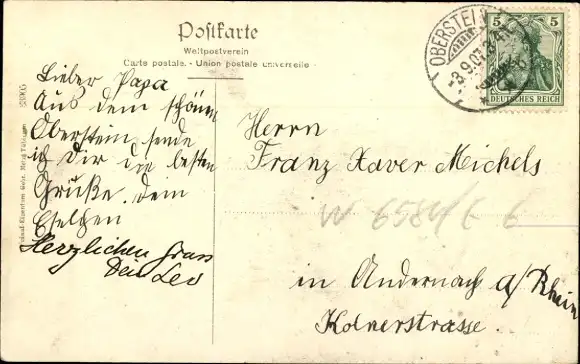 Postkarte
Weltpostverein
Carte postale. - Union postale universelle
Lieber Papa
Aus dem schönen
Oberstein sende
ich Dir die besten
Grüße. Dein
Eselchen
Herzlichen Gruss
Dein Leo
Herrn
Franz Xaver Michels
W 6584/6 6
in Andernach a/Rhein
Kolnerstrasse.
OBERSTEIN
5 5
DEUTSCHES REICH